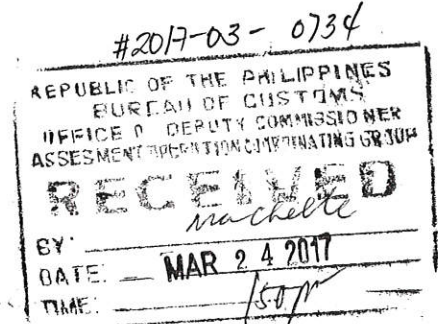 #2017-03-0734
REPUBLIC OF THE PHILIPPINES
BUREAU OF CUSTOMS
OFFICE O DEPUTY COMMISSIONER
ASSESMENT OPERATION COORDINATING GROUP
RECEIVED
BY: Machelle
DATE: MAR 24 2017
TIME: